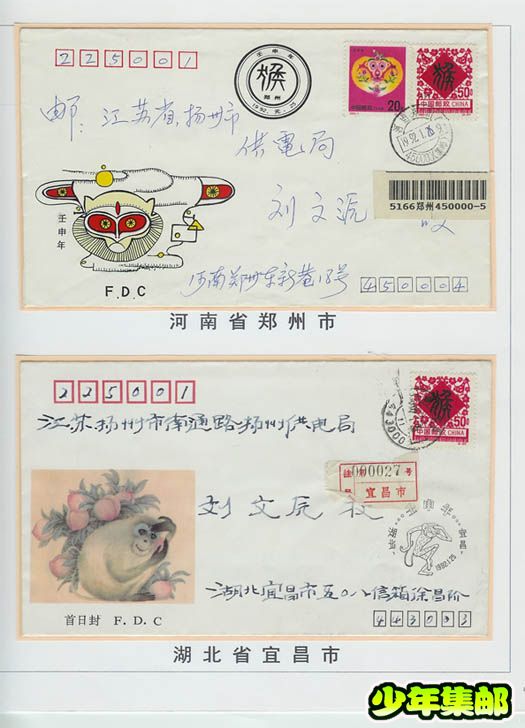 225001
壬申年
猴
郑州
1992.元.25
20分
猴
50分
中国邮政 CHINA
邮:江苏省扬州市
供电局
刘文派 收
5166郑州450000-5
壬申年
F.D.C
河南郑州东新巷18号
450004
河南省郑州市
225001
猴
50分
中国邮政 CHINA
江苏扬州市南通路扬州供电局
000027 号
宜昌市
刘文 收
宜昌
1992.1.25
首日封 F.D.C
湖北宜昌市五〇八信箱徐昌阶
443003
湖北省宜昌市
少年集邮